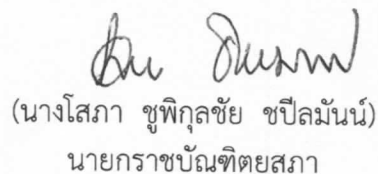 (นางโสภา ชูพิกุลชัย ชปีลมันน์)
นายกราชบัณฑิตยสภา